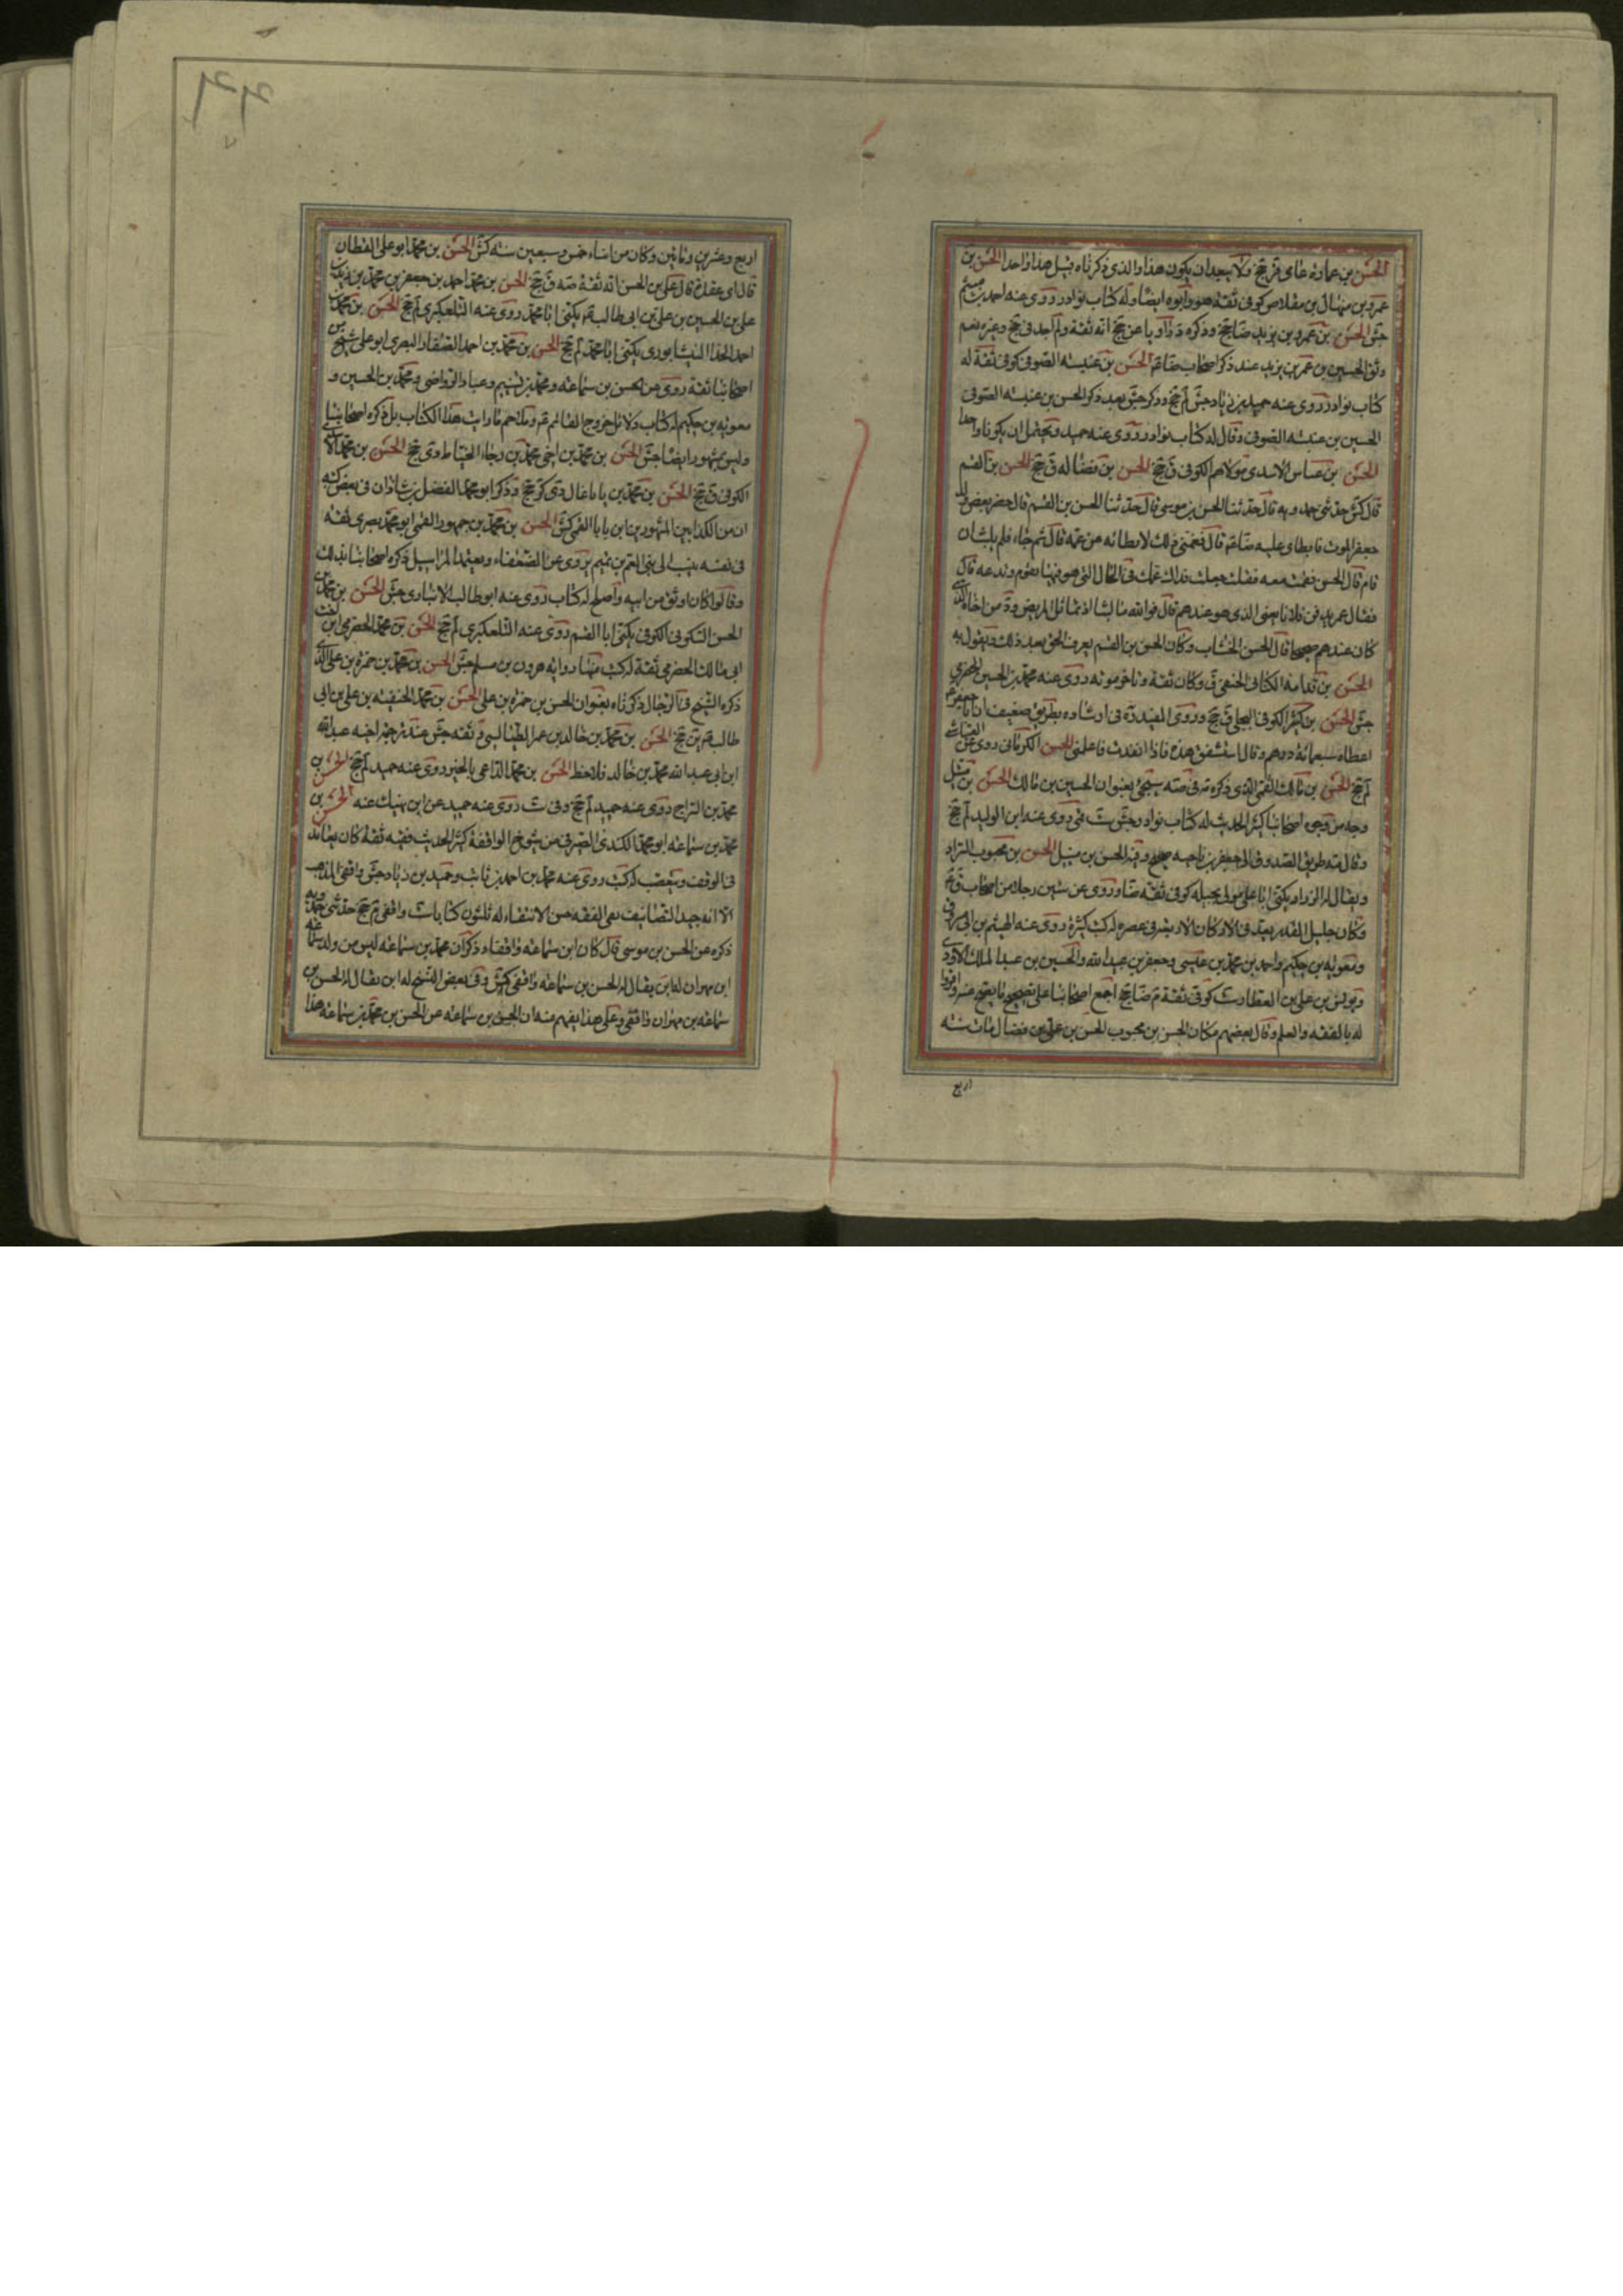 الحسن بن عمارة عامى قر جخ ولا يبعد ان يكون هذا والذى ذكرناه قبيل هذا واحدا الحسن بن
عمرو بن منهال بن مقلاص كوفى ثقة هو وابوه ايضا وله كتاب نوادر روى عنه احمد بن ميثم
جش الحسن بن عمرو بن يزيد ضا جخ وذكره د راويا عن جخ انه ثقة ولم اجد فى جخ وغيره نعم
وثق الحسين بن عمر بن يزيد عند ذكر اصحاب ضا عم الحسن بن عنبسة الصوفى كوفى ثقة له
كتاب نوادر روى عنه حميد بن زياد جش لم جخ وذكر جش بعد ذكر الحسن بن عنبسة الصوفى
الحسين بن عنبسة الصوفى وقال له كتاب نوادر روى عنه حميد ويحتمل ان يكونا واحدا
الحسن بن عياس الاسدى مولاهم الكوفى ق جخ الحسن بن فضاله ق جخ الحسن بن القسم
قال كش حدثنى حمدويه قال حدثنا الحسن بن موسى قال حدثنا الحسن بن القسم قال حضر بعض ولد
جعفر الموت فابطاى عليه ضا عم قال فغمنى ذلك لابطائه عن عمه قال ثم جاء فلم يلبث ان
قام قال الحسن فقمت معه فقلت جعلت فداك عمك فى الحال التى هو فيها تقوم وتدعه فقال
فقال عمى يدفن فلانا يعنى الذى هو عندهم قال فوالله ما لبثنا ان تماثل المريض ودفن اخاه الذى
كان عندهم صحيحا قال الحسن الخشاب وكان الحسن بن القسم يعرف الحق بعد ذلك ويقول به
الحسن بن قدامة الكنانى الحنفى ق وكان ثقة وتاخر موته روى عنه محمد بن الحسين الحضرمى
جش الحسن بن كثير الكوفى البجلى ق جخ وروى المفيد ره فى ارشاده بطريق ضعيف ان ابا جعفر عم
اعطاه سبعمائة درهم وقال استنفق هذه فاذا انفدت فاعلمنى الحسن الكرمانى روى عن العياشى
لم جخ الحسن بن مالك القمى الذى ذكره فى صه سيجئ بعنوان الحسين بن مالك الحسن بن متيل
وجه من وجوه اصحابنا كثير الحديث له كتاب نوادر جش ست قمى روى عنه ابن الوليد لم جخ
وقال صه طريق الصدوق الى جعفر بن ناجيه صحيح وفيه الحسن بن متيل الحسن بن محبوب السراد
ويقال له الزراد يكنى ابا على مولى بجيله كوفى ثقة ضا وروى عن ستين رجلا من اصحاب ق عم
وكان جليل القدر يعد فى الاركان الاربعة فى عصره له كتب كثيرة روى عنه الهيثم بن ابى مسروق
ومعويه بن حكيم واحمد بن محمد بن عيسى وجعفر بن عبيد الله والحسين بن عبد الملك الاودى
ويونس بن على بن العطار ست كوفى ثقة م ضا جخ اجمع اصحابنا على تصحيح ما يصح عنه واقروا
له بالفقه والعلم وقال بعضهم مكان الحسن بن محبوب الحسن بن على بن فضال مات سنة
اربع
اربع وعشرين ومائتين وكان من ابناء خمس وسبعين سنه كش الحسن بن محمد ابو على القطان
قال ابن عقدة قال على بن الحسن انه ثقة صه ق جخ الحسن بن محمد احمد بن جعفر بن محمد بن زيد بن
على بن الحسين بن على بن ابى طالب عم يكنى ابا محمد روى عنه التلعكبرى لم جخ الحسن بن محمد بن
احمد الحذا النيشابورى يكنى ابا محمد لم جخ الحسن بن محمد بن احمد الصفار البصرى ابو على شيخ من
اصحابنا ثقة روى عن الحسن بن سماعه ومحمد بن تسنيم وعباد الرواجنى ومحمد بن الحسين و
معويه بن حكيم له كتاب دلائل خروج القائم عم وملاحم ما رايت هذا الكتاب بل ذكره اصحابنا
وليس بمشهور ايضا جش الحسن بن محمد بن اخى محمد بن رجاء الخياط دى جخ الحسن بن محمد الاسدى
الكوفى ق جخ الحسن بن محمد بن بابا غال دى كر جخ وذكر ابو محمد الفضل بن شاذان فى بعض كتبه
ان من الكذابين المشهورين ابن بابا القمى كش الحسن بن محمد بن جمهور القمى ابو محمد بصرى ثقة
فى نفسه ينسب الى بنى العم من تميم يروى عن الضعفاء ويعتمد المراسيل ذكره اصحابنا بذلك
وقالوا كان اوثق من ابيه واصلح له كتاب روى عنه ابو طالب الانبارى جش الحسن بن محمد بن
الحسن السكونى الكوفى يكنى ابا القسم روى عنه التلعكبرى لم جخ الحسن بن محمد الحضرمى ابن اخت
ابى مالك الحضرمى ثقة له كتب منها رواية هرون بن مسلم جش الحسن بن محمد بن حمزة بن على الذى
ذكره الشيخ فى الرجال ذكرناه بعنوان الحسن بن حمزه بن على الحسن بن محمد الحنفيه بن على بن ابى
طالب عم ين جخ الحسن بن محمد بن خالد بن عمر الطيالسى ثقه جش عند ترجمة اخيه عبد الله
ابن ابى عبد الله محمد بن خالد فلاحظ الحسن بن محمد الداعى بالخير روى عنه حميد لم جخ الحسن بن
محمد بن السراج روى عنه حميد لم جخ وفى ست روى عنه حميد عن ابن نهيك عنه الحسن بن
محمد بن سماعه ابو محمد الكندى الصيرفى من شيوخ الواقفة كثير الحديث فقيه ثقة كان يعاند
فى الوقف ويتعصب له كتب روى عنه محمد بن احمد بن ثابت وحميد بن زياد جش واقفى المذهب
الا انه جيد التصانيف نقى الفقه حسن الانتقاء له ثلثون كتابا ست واقفى م جخ حدثنى حمدويه
ذكره عن الحسن بن موسى قال كان ابن سماعه واقفا وذكر ان محمد بن سماعه ليس من ولد سماعه
ابن مهران له ابن يقال له الحسن بن سماعه واقفى كش وفى بعض النسخ له ابن يقال له الحسن بن
سماعه بن مهران واقفى وعلى هذا يفهم منه ان الحسن بن سماعه عن الحسن بن محمد بن سماعه هذا